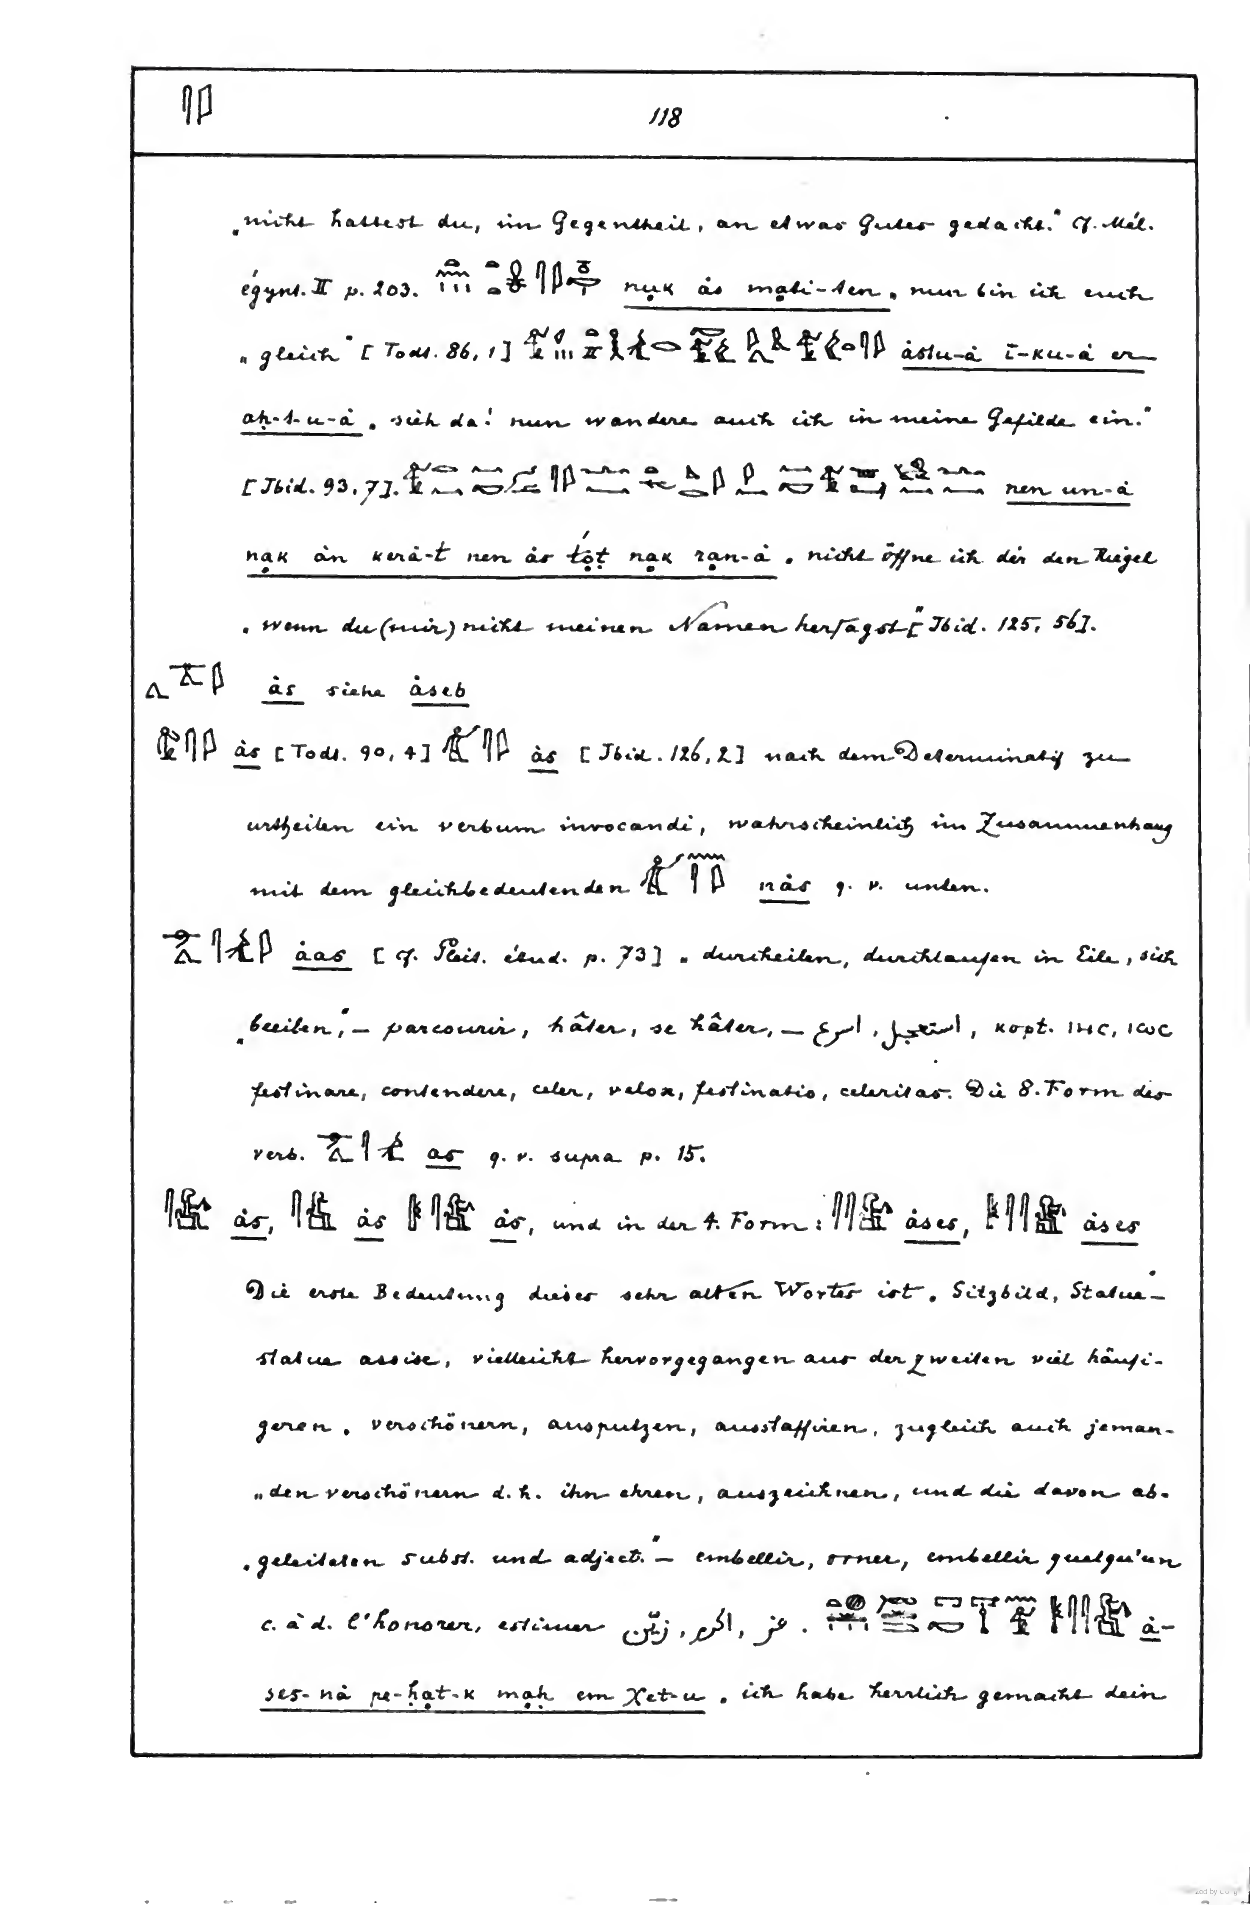 118
„nicht hattest du, im Gegentheil, an etwas Gutes gedacht." Cf. Mél.
égypt. II p. 203. nuk ȧs mati-ten „nun bin ich euch
„gleich" [Todt. 86, 1] ȧstu-ȧ ī-ku-ȧ er
aḥ-t-u-ȧ „sieh da! nun wandere auch ich in meine Gefilde ein."
[Ibid. 93, 7]. nen un-ȧ
nak ȧn kerȧ-t nen ȧs tot nak ran-ȧ „nicht öffne ich dir den Riegel
„wenn du (mir) nicht meinen Namen hersagst" [Ibid. 125, 56].
ȧs siehe ȧseb
ȧs [Todt. 90, 4] ȧs [Ibid. 126, 2] nach dem Determinatif zu
urtheilen ein verbum invocandi, wahrscheinlich im Zusammenhang
mit dem gleichbedeutenden nȧs q. v. unten.
ȧas [cf. Pleit. étud. p. 73] „durcheilen, durchlaufen in Eile, sich
„beeilen", — parcourir, hâter, se hâter, — استعجل, اسرع, kopt. ⲓⲏⲥ, ⲓⲱⲥ
festinare, contendere, celer, velox, festinatio, celeritas. Die 8. Form des
verb. as q. v. supra p. 15.
ȧs, ȧs ȧs, und in der 4. Form: ȧses, ȧses
Die erste Bedeutung dieses sehr alten Wortes ist „Sitzbild, Statue" —
statue assise, vielleicht hervorgegangen aus der zweiten viel häufi-
geren „verschönern, ausputzen, ausstaffiren, zugleich auch jeman-
„den verschönern d. h. ihn ehren, auszeichnen, und die davon ab-
„geleiteten subst. und adject." — embellir, orner, embellir quelqu'un
c. à d. l'honorer, estimer زيّن, اكرم, عز. ȧ-
ses-nȧ pe-ḥat-k maḥ em χet-u „ich habe herrlich gemacht dein